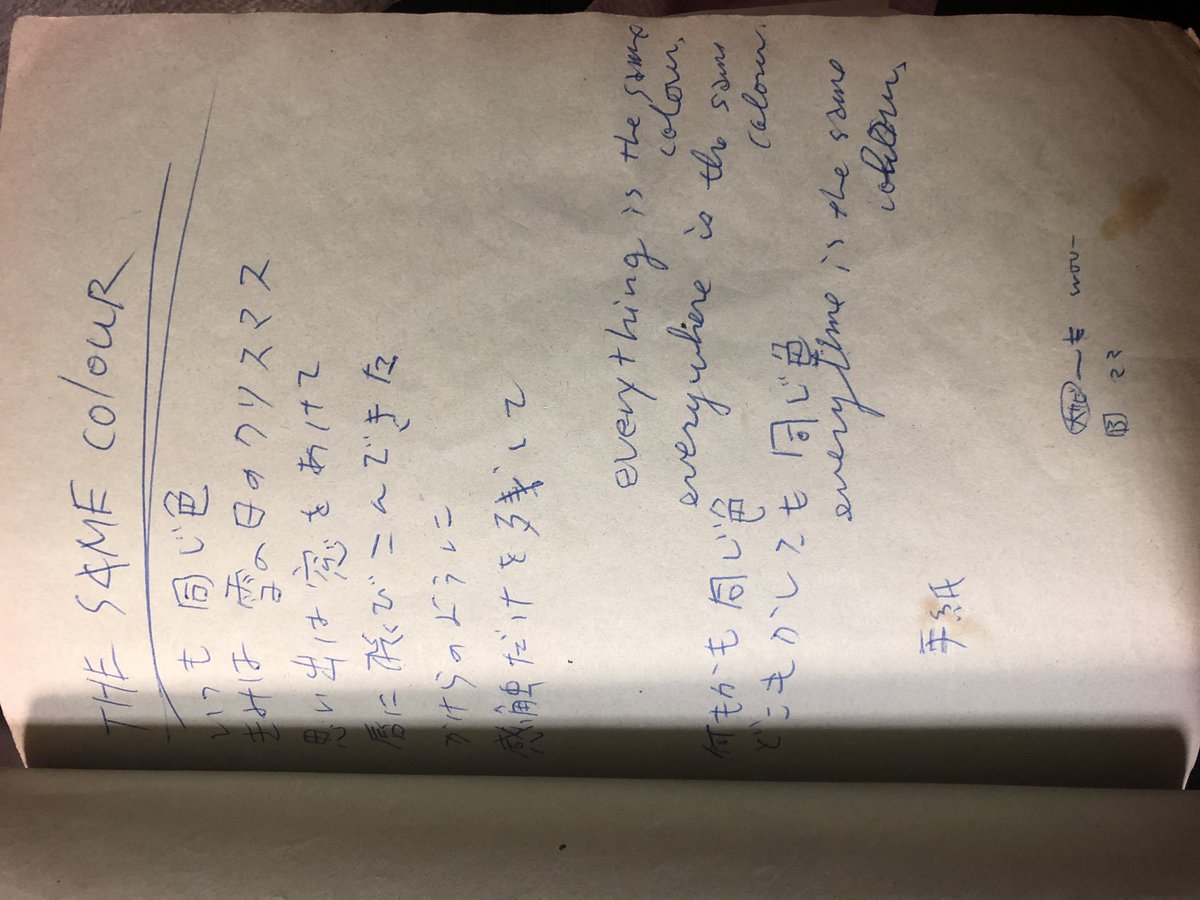 THE SAME COLOUR
いつも 同じ色
きみは 雪の日のクリスマス
思い出は 窓をあけて
唇に 飛びこんできた
かけらのように
感触だけを残して
everything is the same
colour,
everywhere is the same
colour.
何もかも 同じ色
どこもかしこも 同じ色
everytime is the same
colour,
手紙